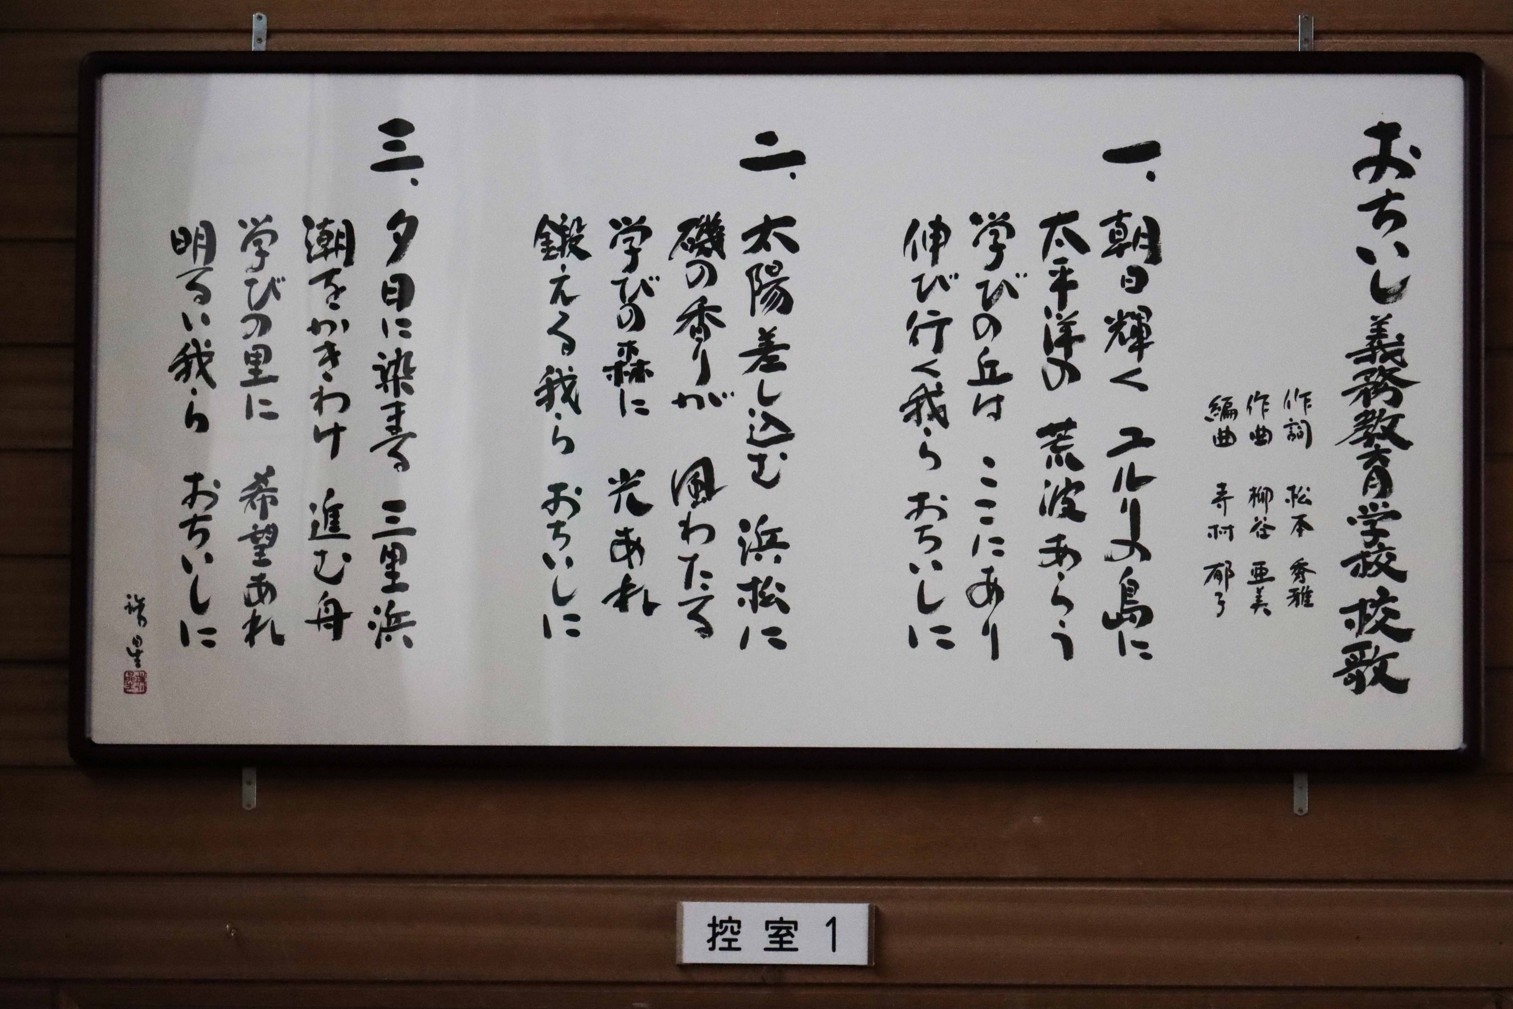 おちいし義務教育学校 校歌
作詞 松本 秀雅
作曲 柳谷 亜美
編曲 寺村 郁子
一、朝日輝く ユルリの島に
太平洋の 荒波あらう
学びの丘は ここにあり
伸び行く我ら おちいしに
二、太陽差し込む 浜松に
磯の香りが 風わたる
学びの森に 光あれ
鍛える我ら おちいしに
三、夕日に染まる 三里浜
潮をかきわけ 進む舟
学びの里に 希望あれ
明るい我ら おちいしに
控室1